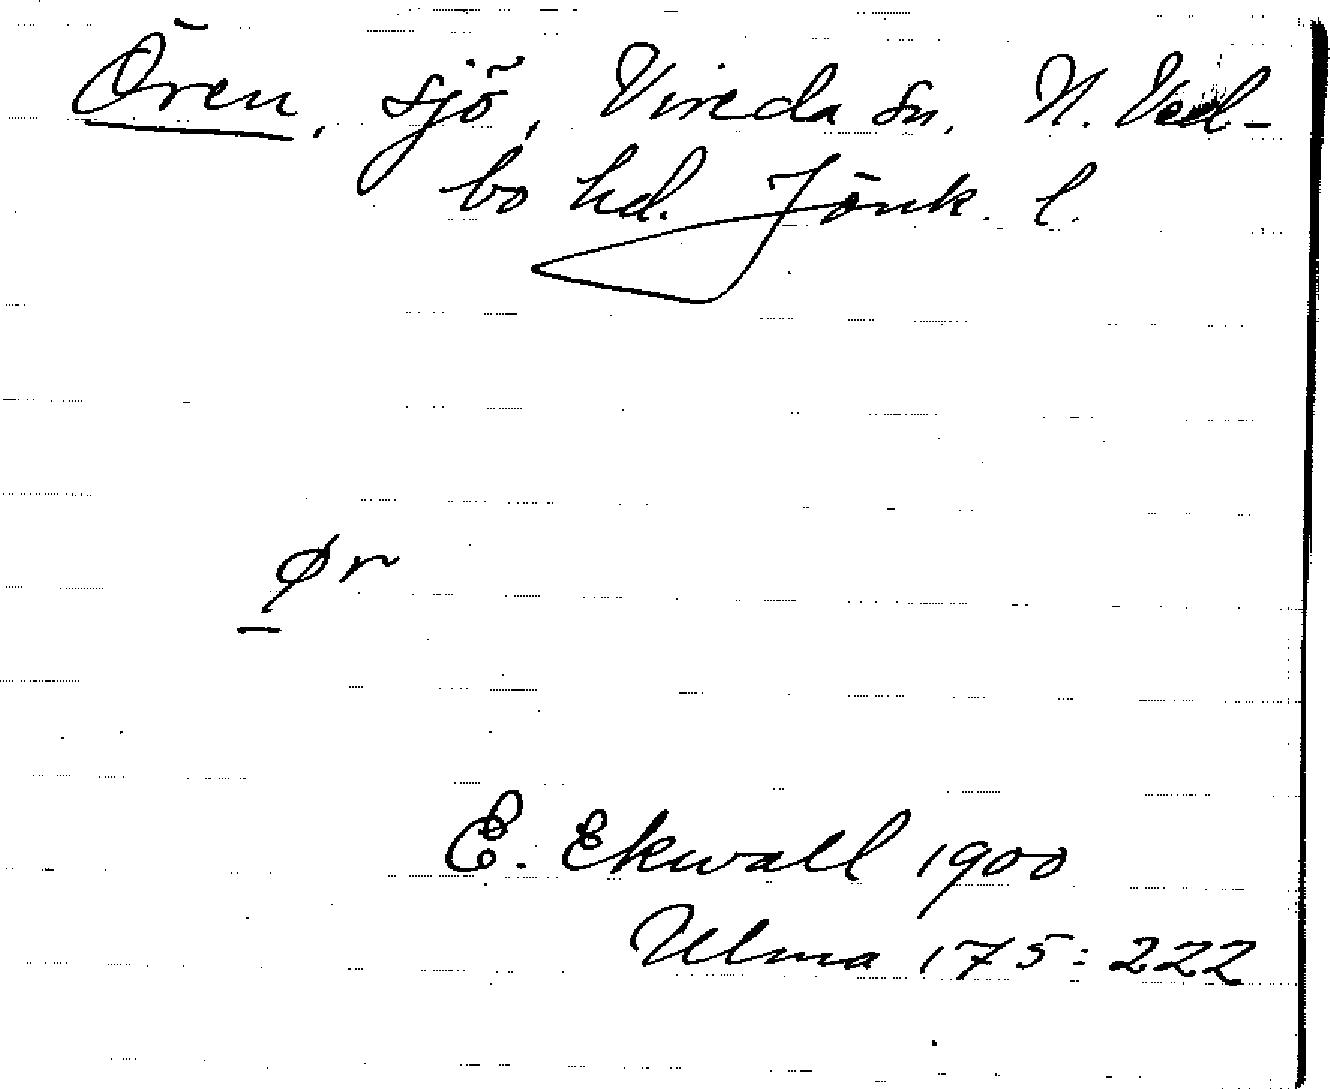 Ören, sjö, Vireda sn. N. Ved-
bo hd. Jönk. l.
ør
E. Ekwall 1900
Ulma 175:222